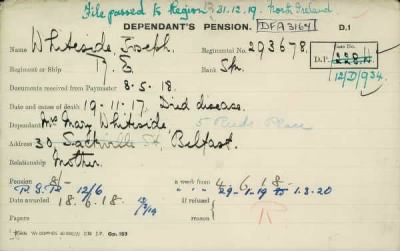 File passed to Region 31.12.19. North Ireland
DEPENDANT'S PENSION. DFA3164 D.1
Name Whiteside, Joseph. Regimental No. 293678.
Regiment or Ship R. E. Rank Spr.
D.P. 12/D/934.
Documents received from Paymaster 8.5.18.
Date and cause of death 19-11-17. Died disease.
Dependant Mrs Mary Whiteside.
Address 30, Sackville St, Belfast. 5 Place
Relationship Mother.
Pension 8/- a week from 4.6.18.
12/6 " " 29-1-19 to 1.3.20
Date awarded 18.6.18. If refused
Papers reason R